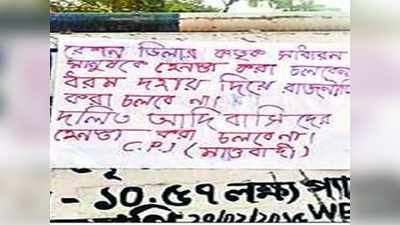 রেশন ডিলার কতৃক সাধারন
মানুষকে হেনস্তা করা চলবেনা
ধরম দহায় দিয়ে রাজনীতি
করা চলবে না।
দলিত আদিবাসিদের
হেনস্তা করা চলবেনা।
C.P.I (মাওবাদী)
- ১০.৫৭ লক্ষ্য
20/02/201 WE